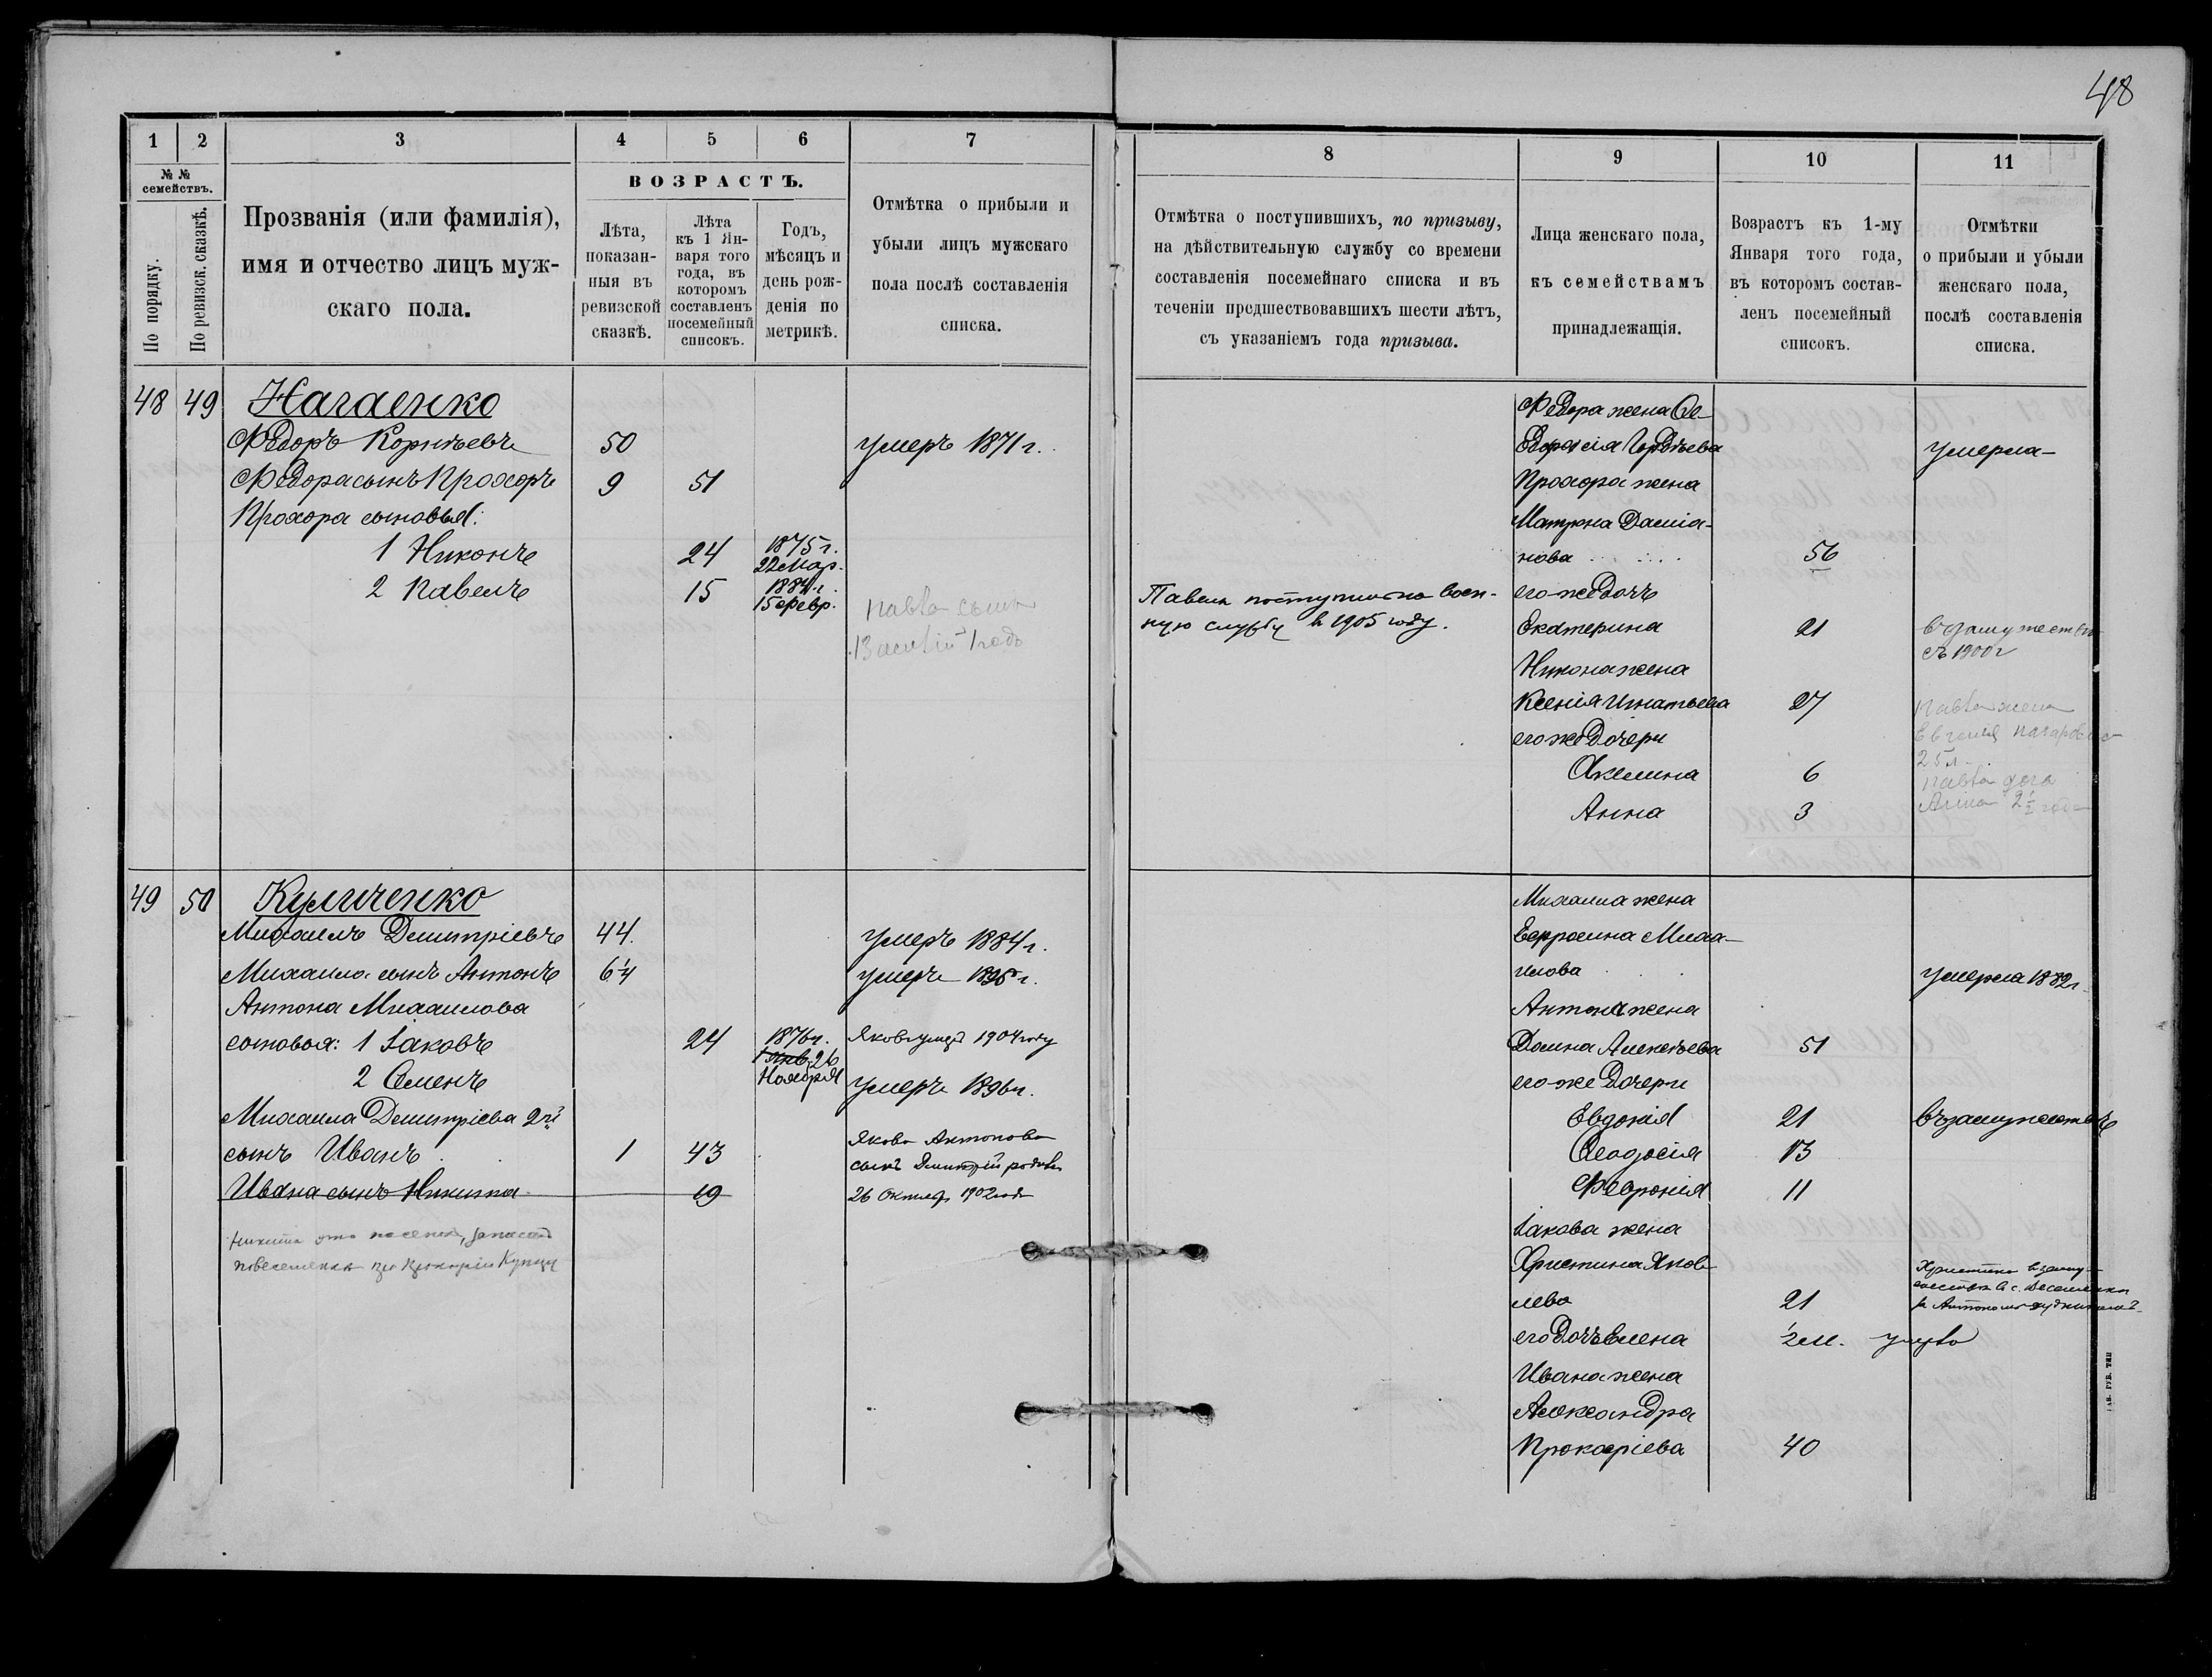 48
1
2
3
4
5
6
7
№ №
семействъ.
По порядку.
По ревизск. сказкѣ.
Прозванія (или фамилія),
имя и отчество лицъ муж-
скаго пола.
ВОЗРАСТЪ.
Лѣта,
показан-
ныя въ
ревизской
сказкѣ.
Лѣта
къ 1 Ян-
варя того
года, въ
котором
составленъ
посемейный
списокъ.
Годъ,
мѣсяцъ и
день рож-
денія по
метрикѣ.
Отмѣтка о прибыли и
убыли лицъ мужскаго
пола послѣ составленія
списка.
48 49 Нагаенко
Федоръ Корнѣевъ 50 умеръ 1871 г.
Федора сынъ Прохоръ 9 51
Прохора сыновья:
1 Никонъ 24 1875 г.
22 Мар.
2 Павелъ 15 1884 г.
15 февр.
Павла сынъ
Василій 1 годъ
49 50 Куличенко
Михаилъ Димитріевъ 44. умеръ 1884 г.
Михаила сынъ Антонъ 6 1/4 умеръ 1895 г.
Антона Михаилова
сыновья: 1 Іаковъ 24 1876 г. Яковъ умеръ 1904 году
1 Янв. 26
Ноября
2 Семенъ умеръ 1896 г.
Михаила Димитріева 2й
сынъ Иванъ 1 43
Якова Антонова
сынъ Дмитрій родив.
26 Октябр 1902 года
Ивана сынъ Никита 19
Никита
8
9
10
11
Отмѣтка о поступившихъ, по призыву,
на дѣйствительную службу со времени
составленія посемейнаго списка и въ
теченіи предшествовавшихъ шести лѣтъ,
съ указаніемъ года призыва.
Лица женскаго пола,
къ семействамъ
принадлежащія.
Возрастъ къ 1-му
Января того года,
въ которомъ состав-
ленъ посемейный
списокъ.
Отмѣтки
о прибыли и убыли
женскаго пола,
послѣ составленія
списка.
Федора жена Ѳе-
досія Гордѣева умерла
Прохора жена
Матрона Даміа-
нова 56
Павелъ поступилъ на воен-
ную службу въ 1905 году.
его же дочь
Екатерина 21 въ замужествѣ
съ 1900 г
Никона жена
Ксенія Игнатьева 27
его же дочери
Акилина 6
Анна 3
Павла жена
Евгенія
25 л.
Павла доч
Анна 2 1/2 года
Михаила жена
Евфросина Миха-
илова умерла 1882 г
Антона жена
Домна Алексѣева 51
его же дочери
Евдокія 21 въ замужествѣ
Ѳеодосія 13
Февронія 11
Іакова жена
Христина Яков-
лева 21
Христина въ заму-
жествѣ в с.
за Антономъ
его дочь Елена 1/2 м. умерла
Ивана жена
Александра
Прокофіева 40